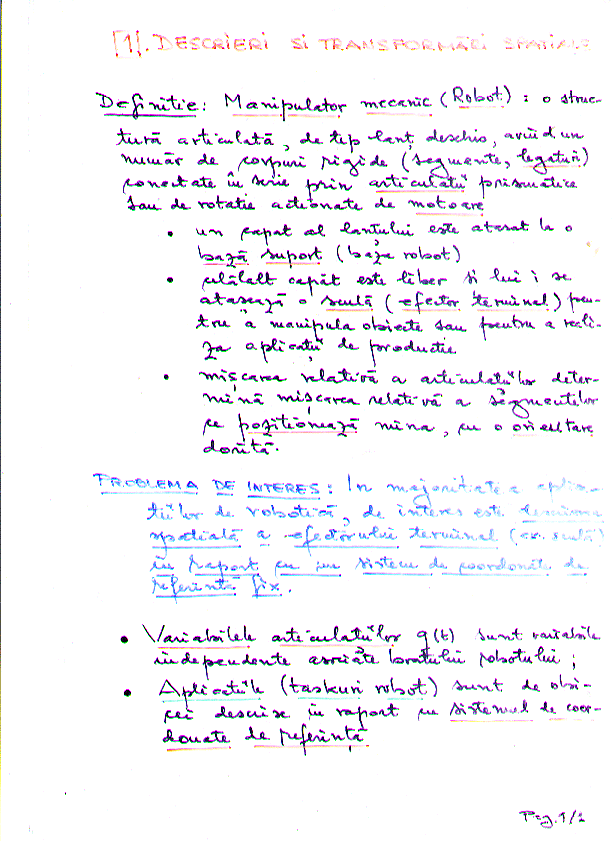 [1]. DESCRIERI SI TRANSFORMĂRI SPATIALE
Definitie: Manipulator mecanic (Robot): o struc-
tură articulată, de tip lanț deschis, avînd un
număr de corpuri rigide (segmente, legături)
conectate în serie prin articulatii prismatice
sau de rotatie actionate de motoare
• un capat al lantului este atasat la o
bază suport (baza robot)
• celălalt capăt este liber si lui i se
atasează o sculă (efector terminal) pen-
tru a manipula obiecte sau pentru a reali-
za aplicatii de productie
• mișcarea relativă a articulatiilor deter-
mină mișcarea relativă a segmentelor
ce pozitionează mina, cu o orientare
dorită.
PROBLEMA DE INTERES: In majoritatea aplica-
tiilor de robotică, de interes este
spatială a efectorului terminal (ex. sculă)
în raport cu un sistem de coordonate de
referintă fix.
• Variabilele articulatiilor q(t) sunt variabile
independente asociate bratului robotului;
• Aplicatiile (taskuri robot) sunt de obi-
cei descrise în raport cu sistemul de coor-
donate de referintă
Pag. 1/2